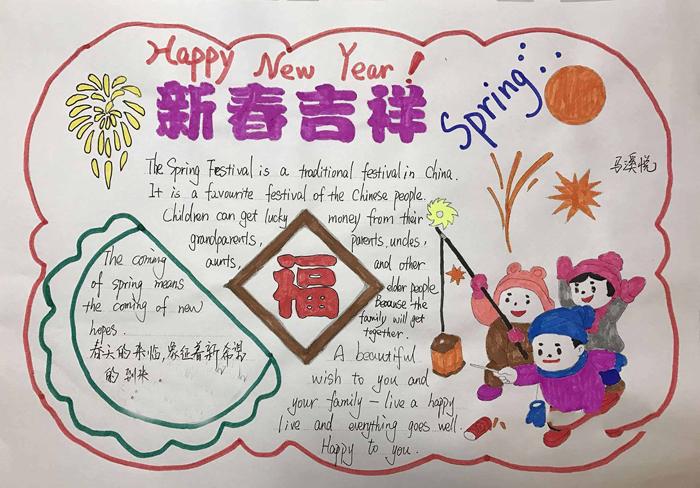 Happy New Year!
新春吉祥
Spring
马溪悦
The Spring Festival is a traditional festival in China.
It is a favourite festival of the Chinese people.
Children can get lucky money from their
grandparents, parents, uncles,
aunts, and other
elder people
Because the
family will get
together.
福
The coming
of spring means
the coming of new
hopes.
春天的来临,象征着新希望
的到来
A beautiful
wish to you and
your family - live a happy
live and everything goes well.
Happy to you.